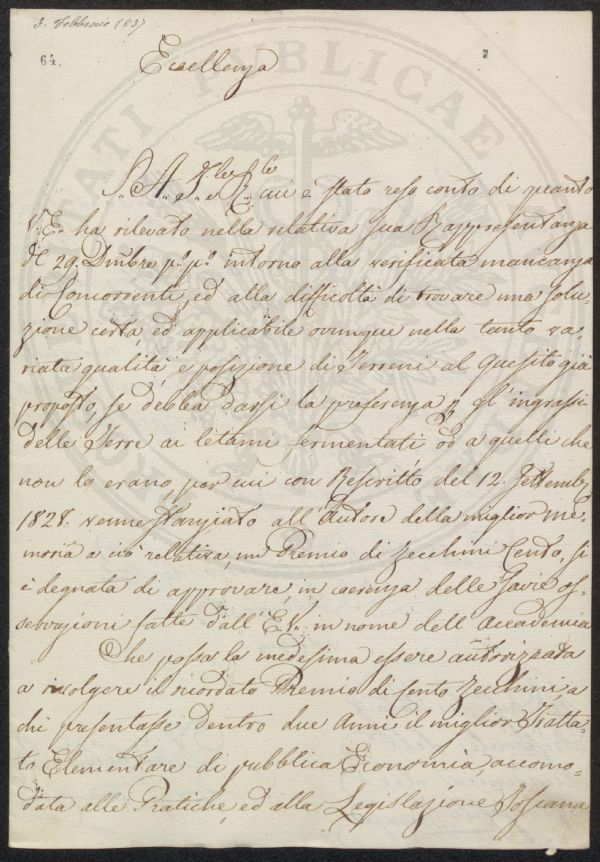 3. Febbraio 1837
64.
Eccellenza
S. A. I. e R. cui è stato reso conto di quanto
V. E. ha rilevato nella relativa sua Rappresentanza
de 29. Dmbre p.o p.o intorno alla verificata mancanza
di Concorrenti, ed alla difficoltà di trovare una solu-
zione certa, ed applicabile ovunque nella tanto va-
riata qualità, e posizione di Terreni al Quesito già
proposto, se debba darsi la preferenza p gl'ingrassi
delle Terre ai letami fermentati od a quelli che
non lo erano per cui con Rescritto del 12. Settembe
1828. venne stanziato all'Autore della miglior me-
moria a ciò relativa, un Premio di Zecchini Cento, si
è degnata di approvare, in coerenza delle savie os-
servazioni fatte dall'E. V. in nome dell'Accademia
Che possa la medesima essere autorizzata
a rivolgere il ricordato Premio di Cento Zecchini, a
chi presentasse dentro due Anni il miglior Tratta-
to Elementare di pubblica Economia, accomo-
data alle Pratiche, ed alla Legislazione Toscana
PUBLICAE